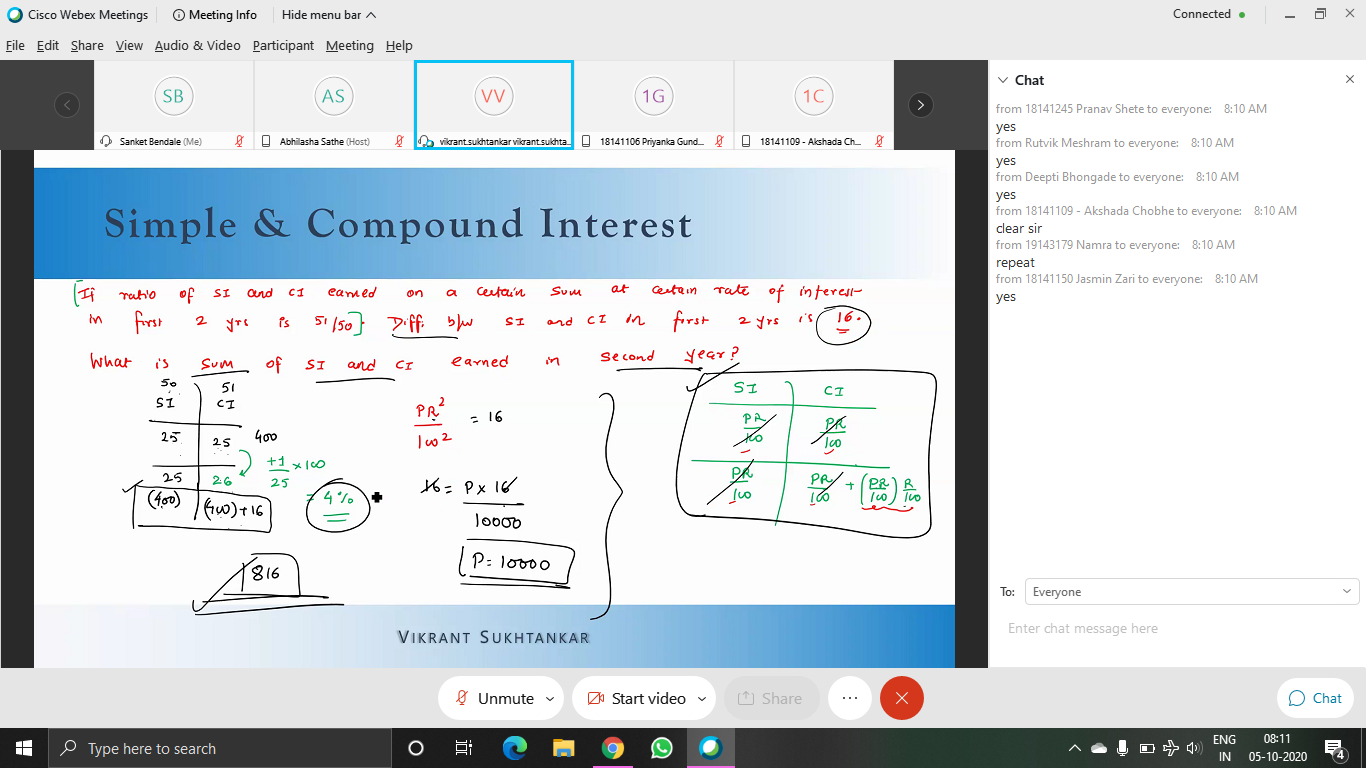 Cisco Webex Meetings
Meeting Info
Hide menu bar
Connected
File Edit Share View Audio & Video Participant Meeting Help
SB
AS
VV
1G
1C
Sanket Bendale (Me)
Abhilasha Sathe (Host)
vikrant.sukhtankar vikrant.sukhta...
18141106 Priyanka Gund...
18141109 - Akshada Ch...
Simple & Compound Interest
If ratio of SI and CI earned on a certain sum at certain rate of interest
in first 2 yrs is 51/50. Diff. b/w SI and CI in first 2 yrs is 16.
What is sum of SI and CI earned in second year?
50 51
SI CI
25 25 400
25 26
+1/25 × 100
= 4%
(400) (400)+16
816
PR²/100² = 16
16 = P × 16
10000
P = 10000
SI CI
PR/100 PR/100
PR/100 PR/100 + (PR/100) R/100
VIKRANT SUKHTANKAR
Chat
from 18141245 Pranav Shete to everyone: 8:10 AM
yes
from Rutvik Meshram to everyone: 8:10 AM
yes
from Deepti Bhongade to everyone: 8:10 AM
yes
from 18141109 - Akshada Chobhe to everyone: 8:10 AM
clear sir
from 19143179 Namra to everyone: 8:10 AM
repeat
from 18141150 Jasmin Zari to everyone: 8:10 AM
yes
To: Everyone
Enter chat message here
Unmute
Start video
Share
Chat
Type here to search
ENG
IN
08:11
05-10-2020
4